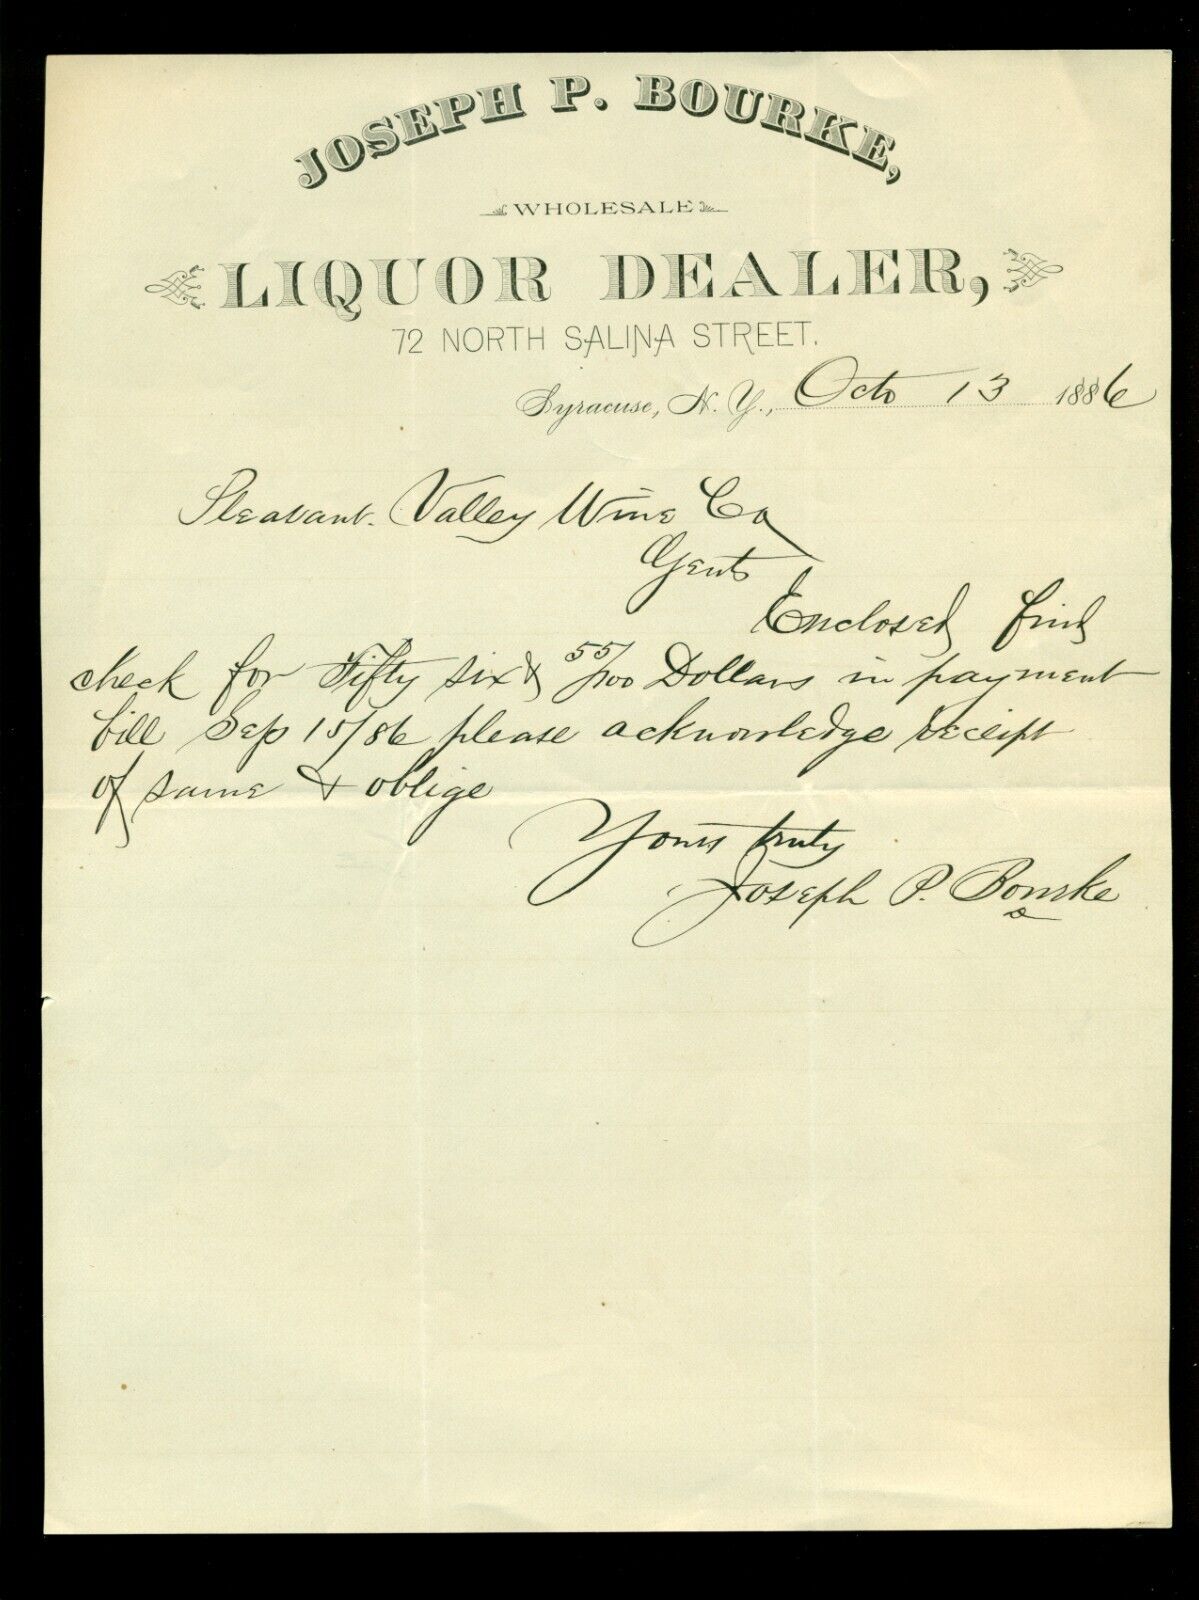 JOSEPH P. BOURKE,
WHOLESALE
LIQUOR DEALER,
72 NORTH SALINA STREET.
Syracuse, N. Y., Octo 13 1886
Pleasant Valley Wine Co
Gents
Enclosed find
check for Fifty six & 55/100 Dollars in payment
bill Sep 15/86 please acknowledge receipt
of same & oblige
Yours truly
Joseph P. Bourke